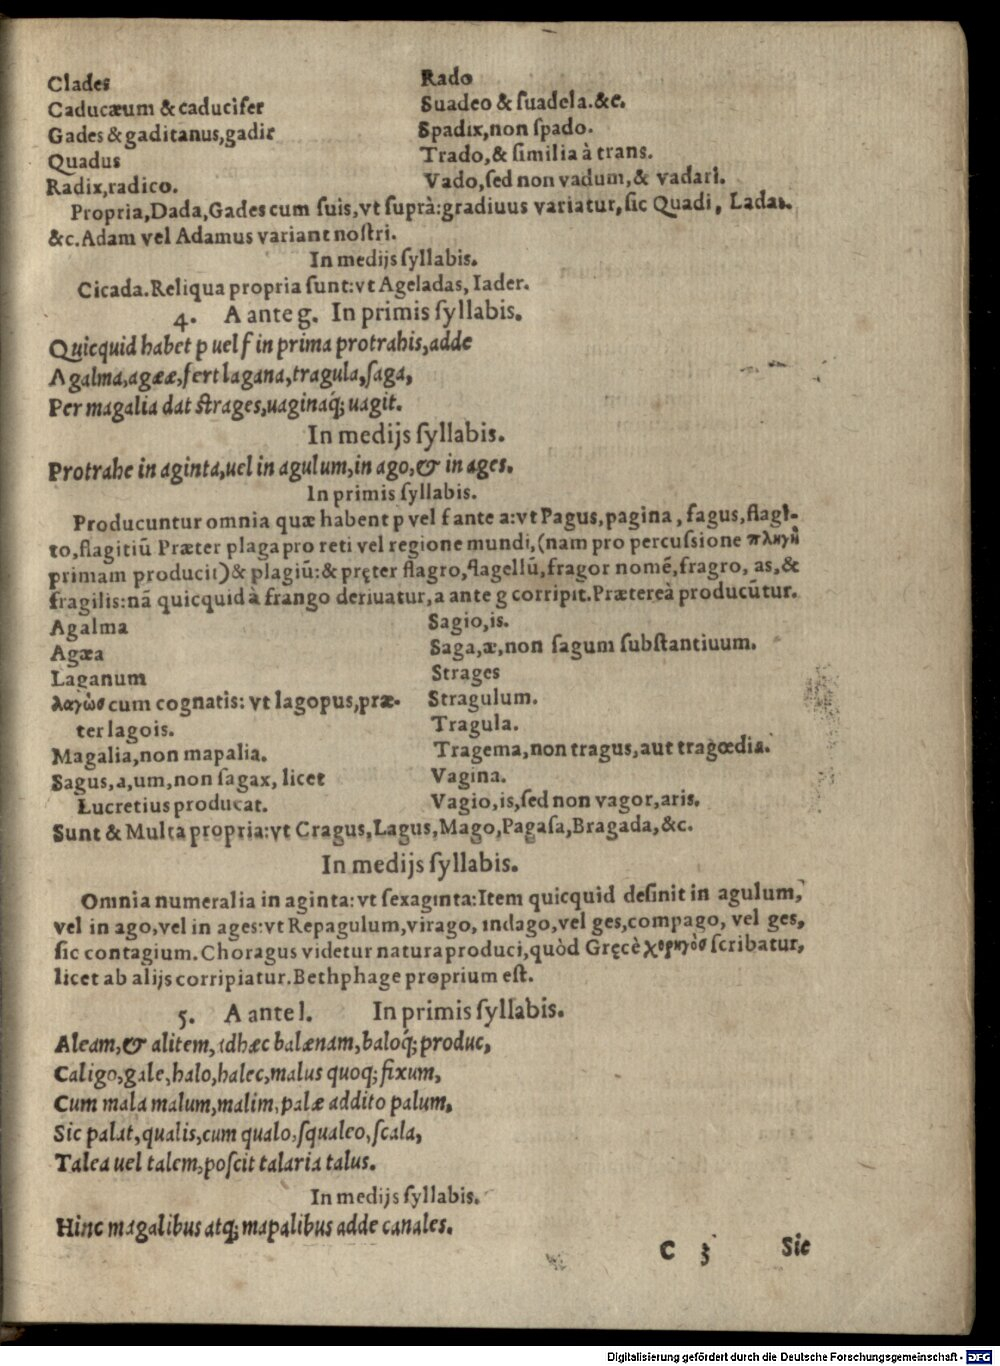 Clades
Caducæum & caducifer
Gades & gaditanus, gadir
Quadus
Radix, radico.
Rado
Suadeo & ſuadela. &c.
Spadix, non ſpado.
Trado, & ſimilia à trans.
Vado, ſed non vadum, & vadari.
Propria, Dada, Gades cum ſuis, vt ſuprà: gradiuus variatur, ſic Quadi, Ladas.
&c. Adam vel Adamus variant noſtri.
In medijs ſyllabis.
Cicada. Reliqua propria ſunt: vt Ageladas, Iader.
4. A ante g. In primis ſyllabis.
Quicquid habet p uel f in prima protrahis, adde
Agalma, agææ, fert lagana, tragula, ſaga,
Per magalia dat ſtrages, uaginaq́; uagit.
In medijs ſyllabis.
Protrahe in aginta, uel in agulum, in ago, & in ages.
In primis ſyllabis.
Producuntur omnia quæ habent p vel f ante a: vt Pagus, pagina, fagus, flagi-
to, flagitiū Præter plaga pro reti vel regione mundi, (nam pro percuſsione πληγὴ
primam producit) & plagiū: & pręter flagro, flagellū, fragor nomē, fragro, as, &
fragilis: nā quicquid à frango deriuatur, a ante g corripit. Prætereà producūtur.
Agalma
Agæa
Laganum
λαγὼσ cum cognatis: vt lagopus, præ-
ter lagois.
Magalia, non mapalia.
Sagus, a, um, non ſagax, licet
Lucretius producat.
Sagio, is.
Saga, æ, non ſagum ſubſtantiuum.
Strages
Stragulum.
Tragula.
Tragema, non tragus, aut tragœdia.
Vagina.
Vagio, is, ſed non vagor, aris.
Sunt & Multa propria: vt Cragus, Lagus, Mago, Pagaſa, Bragada, &c.
In medijs ſyllabis.
Omnia numeralia in aginta: vt ſexaginta: Item quicquid deſinit in agulum,
vel in ago, vel in ages: vt Repagulum, virago, indago, vel ges, compago, vel ges,
ſic contagium. Choragus videtur natura produci, quòd Gręcè χορηγὸσ ſcribatur,
licet ab alijs corripiatur. Bethphage proprium eſt.
5. A ante l. In primis ſyllabis.
Aleam, & alitem, adhæc balænam, baloq́; produc,
Caligo, gale, halo, halec, malus quoq; fixum,
Cum mala malum, malim, palæ addito palum,
Sic palat, qualis, cum qualo, ſqualeo, ſcala,
Talea uel talem, poſcit talaria talus.
In medijs ſyllabis.
Hinc magalibus atq; mapalibus adde canales.
C 3 Sic
Digitalisierung gefördert durch die Deutsche Forschungsgemeinschaft - DFG